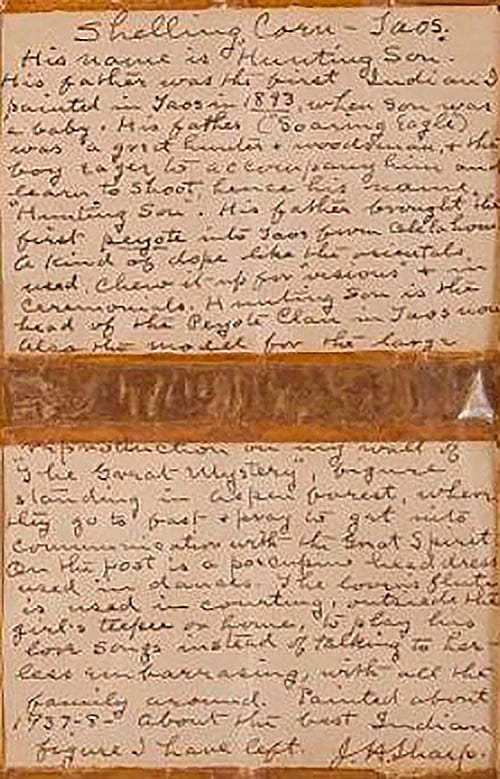 Shelling Corn - Taos.
His name is "Hunting Son.
His father was the first Indian I
painted in Taos in 1893, when Son was
a baby. His father ("Soaring Eagle)
was a great hunter & woodsman, & the
boy eager to accompany him and
learn to shoot, hence his name,
"Hunting Son". His father brought the
first peyote into Taos from Oklahoma
a kind of dope like the orientals
used. Chew it up for visions & in
ceremonials. Hunting Son is the
head of the Peyote Clan in Taos now
Also the model for the large
reproduction on my wall of
"The Great Mystery", figure
standing in aspen forest, where
they go to fast & pray to get into
communication with the Great Spirit
On the post is a porcupine headdress
used in dances. The lovers flute
is used in courting, outside the
girl's teepee or home, to play his
love songs instead of talking to her
less embarrasing, with all the
family around. Painted about
1937-8- About the best Indian
figure I have left. J.H. Sharp.